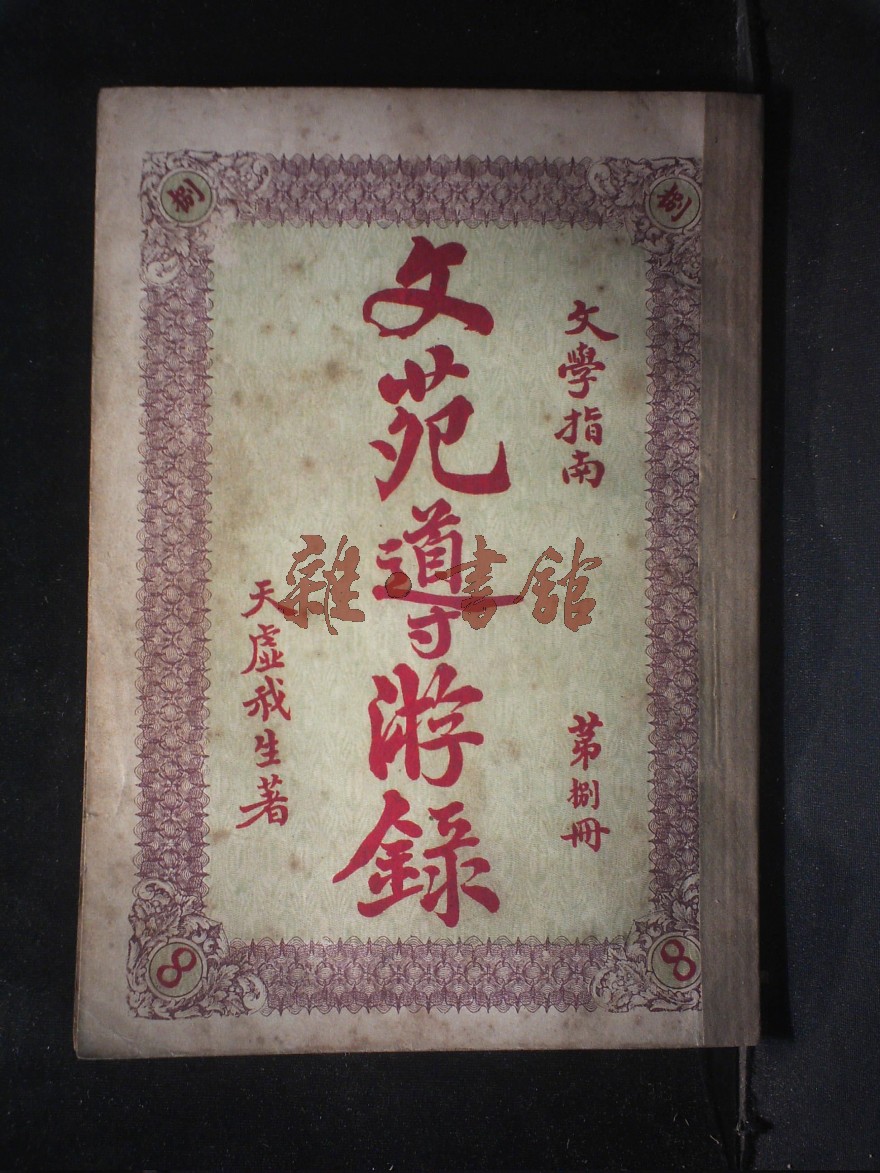 捌
捌
文學指南
第捌冊
文苑導游錄
天虛我生著
雜·書館
8
8